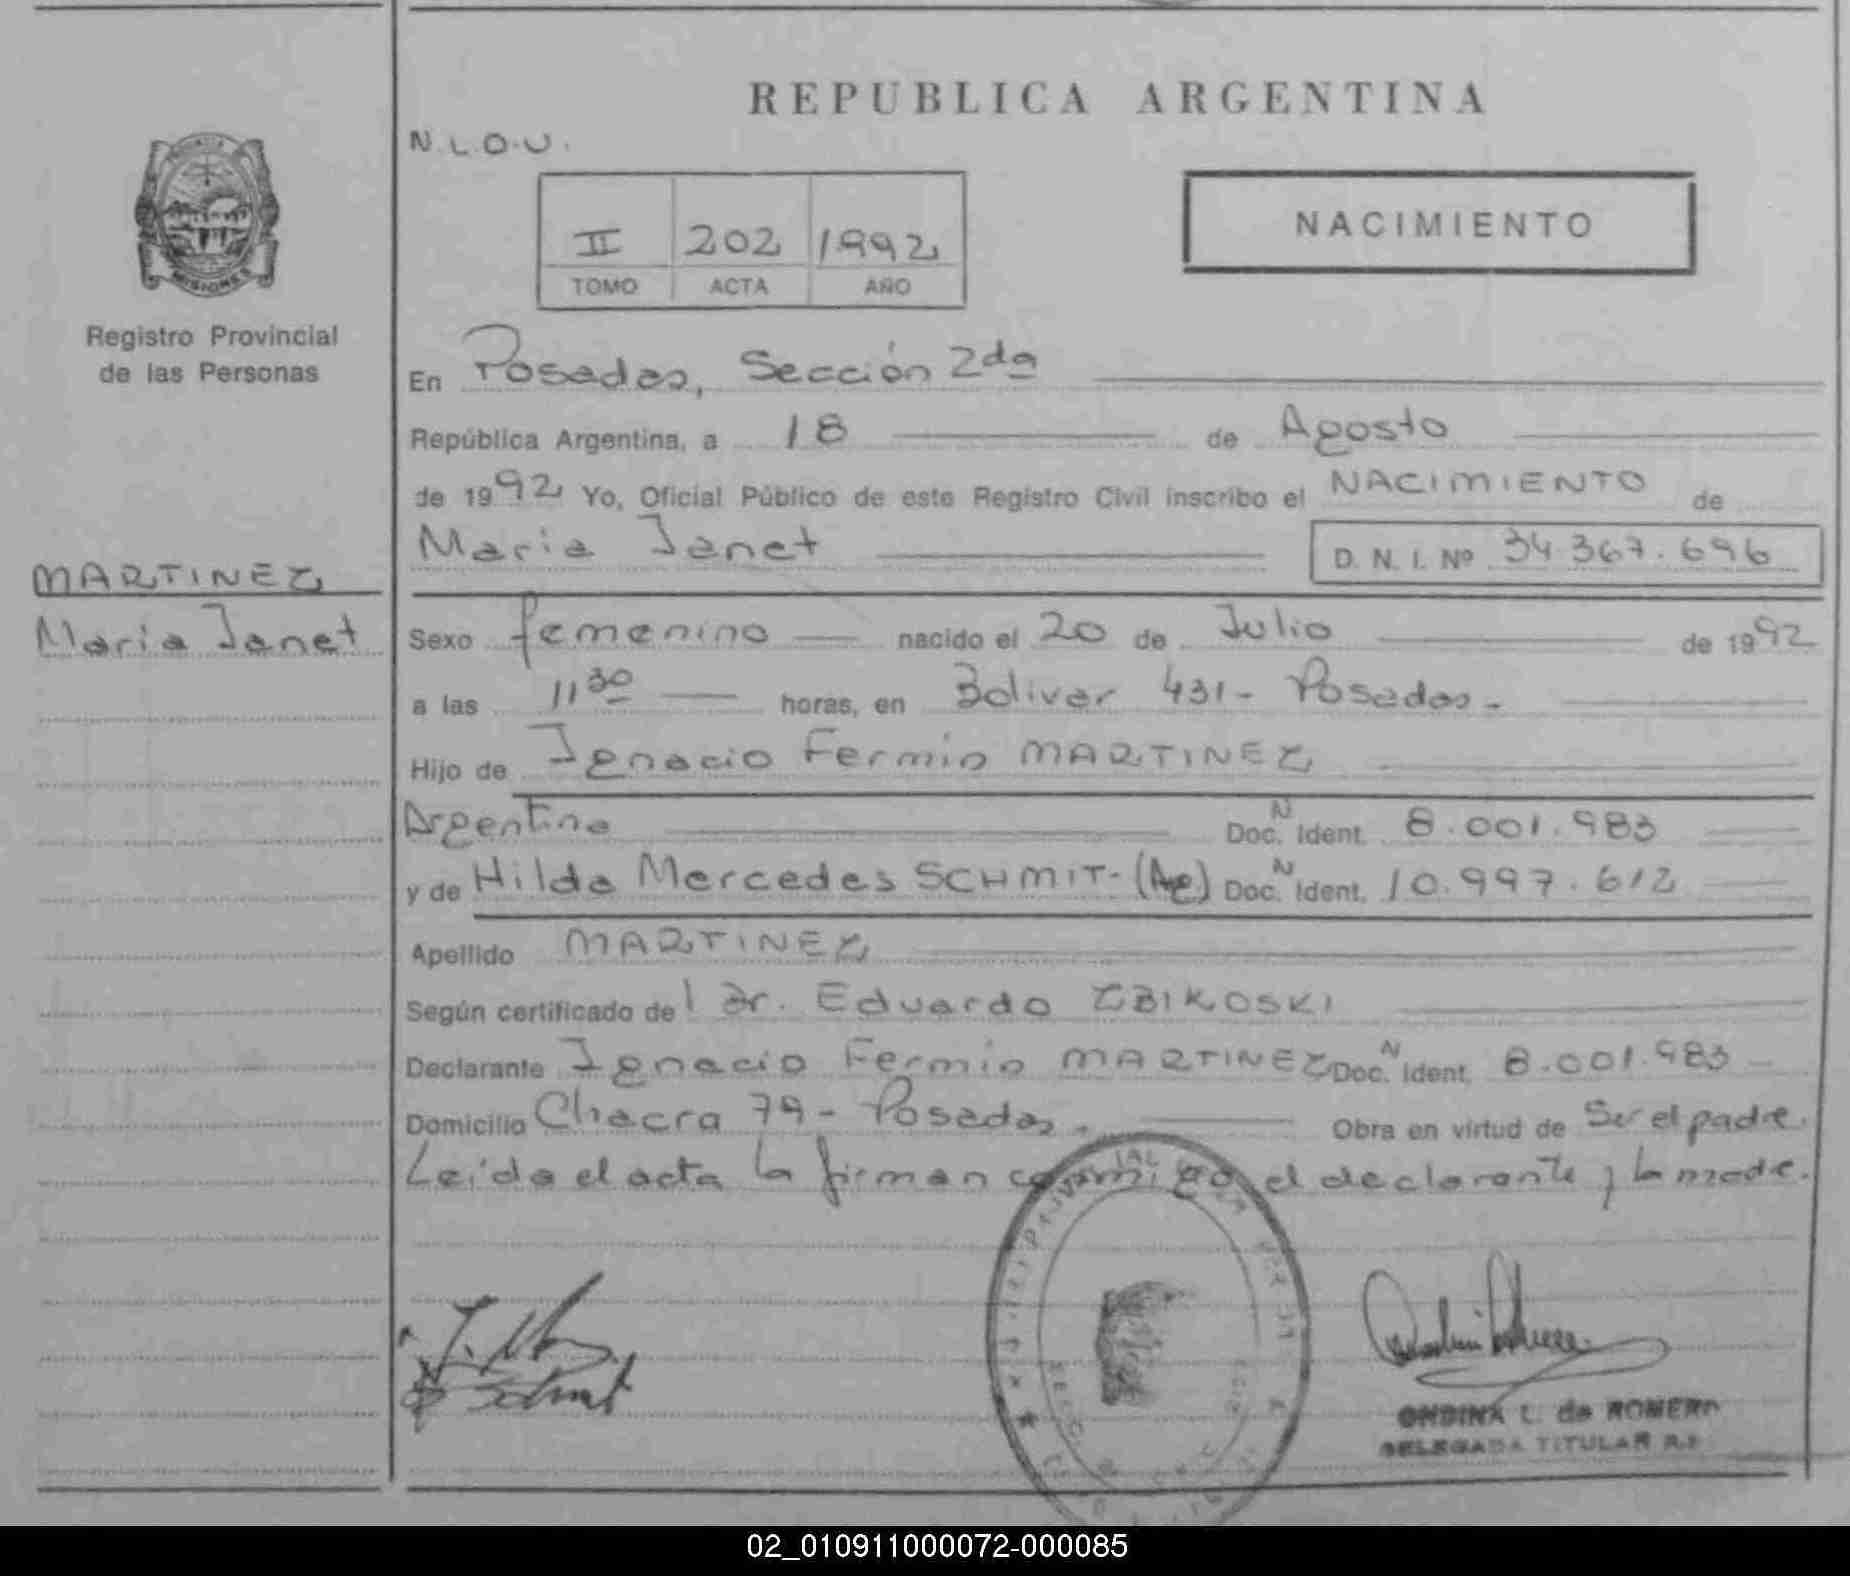 REPUBLICA ARGENTINA
N.L.O.U.
II 202 1992
TOMO ACTA AÑO
NACIMIENTO
MISIONES
Registro Provincial
de las Personas
MARTINEZ
Maria Janet
En Posadas, Sección 2da
República Argentina, a 18 de Agosto
de 1992 Yo, Oficial Público de este Registro Civil inscribo el NACIMIENTO de
Maria Janet D. N. I. Nº 34.367.696
Sexo femenino nacido el 20 de Julio de 1992
a las 11 30 horas, en Bolivar 431- Posadas.
Hijo de Ignacio Fermin MARTINEZ
Argentino Doc. N Ident. 8.001.983
y de Hilda Mercedes SCHMIT- (Ag) Doc. N Ident. 10.997.612
Apellido MARTINEZ
Según certificado del Dr. Eduardo ZBIKOSKI
Declarante Ignacio Fermin MARTINEZ Doc. N Ident. 8.001.983
Domicilio Chacra 79- Posadas. Obra en virtud de Ser el padre.
Leída el acta la firman conmigo el declarante y la madre.
ONDINA L. de ROMERO
DELEGADA TITULAR
02_010911000072-000085